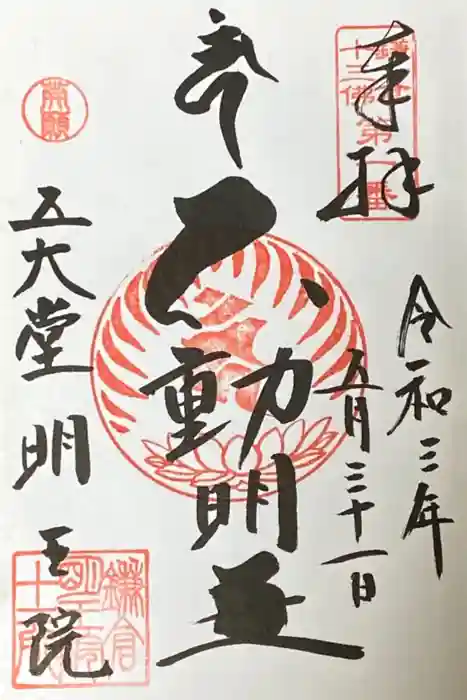 奉拝
鎌倉
十三佛第一番
令和三年
五月三十一日
不動明王
業願
五大堂 明王院
鎌倉
明王院